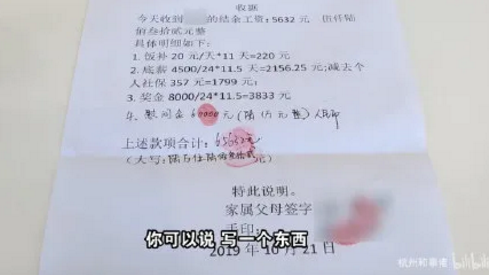 收据
今天收到 的结余工资:5632 元 伍仟陆
佰叁拾贰元整
具体明细如下:
1. 饭补 20 元/天*11 天=220 元
2. 底薪 4500/24*11.5 天=2156.25 元;减去个
人社保 357 元=1799 元;
3. 奖金 8000/24*11.5=3833 元
4. 慰问金 60000 元(陆万元整)人民币
上述款项合计: 65632元
(大写:陆万伍仟陆佰叁拾贰元)
特此说明。
家属父母签字
手印:
2019 年 10 月 21 日
你可以说 写一个东西
bilibili